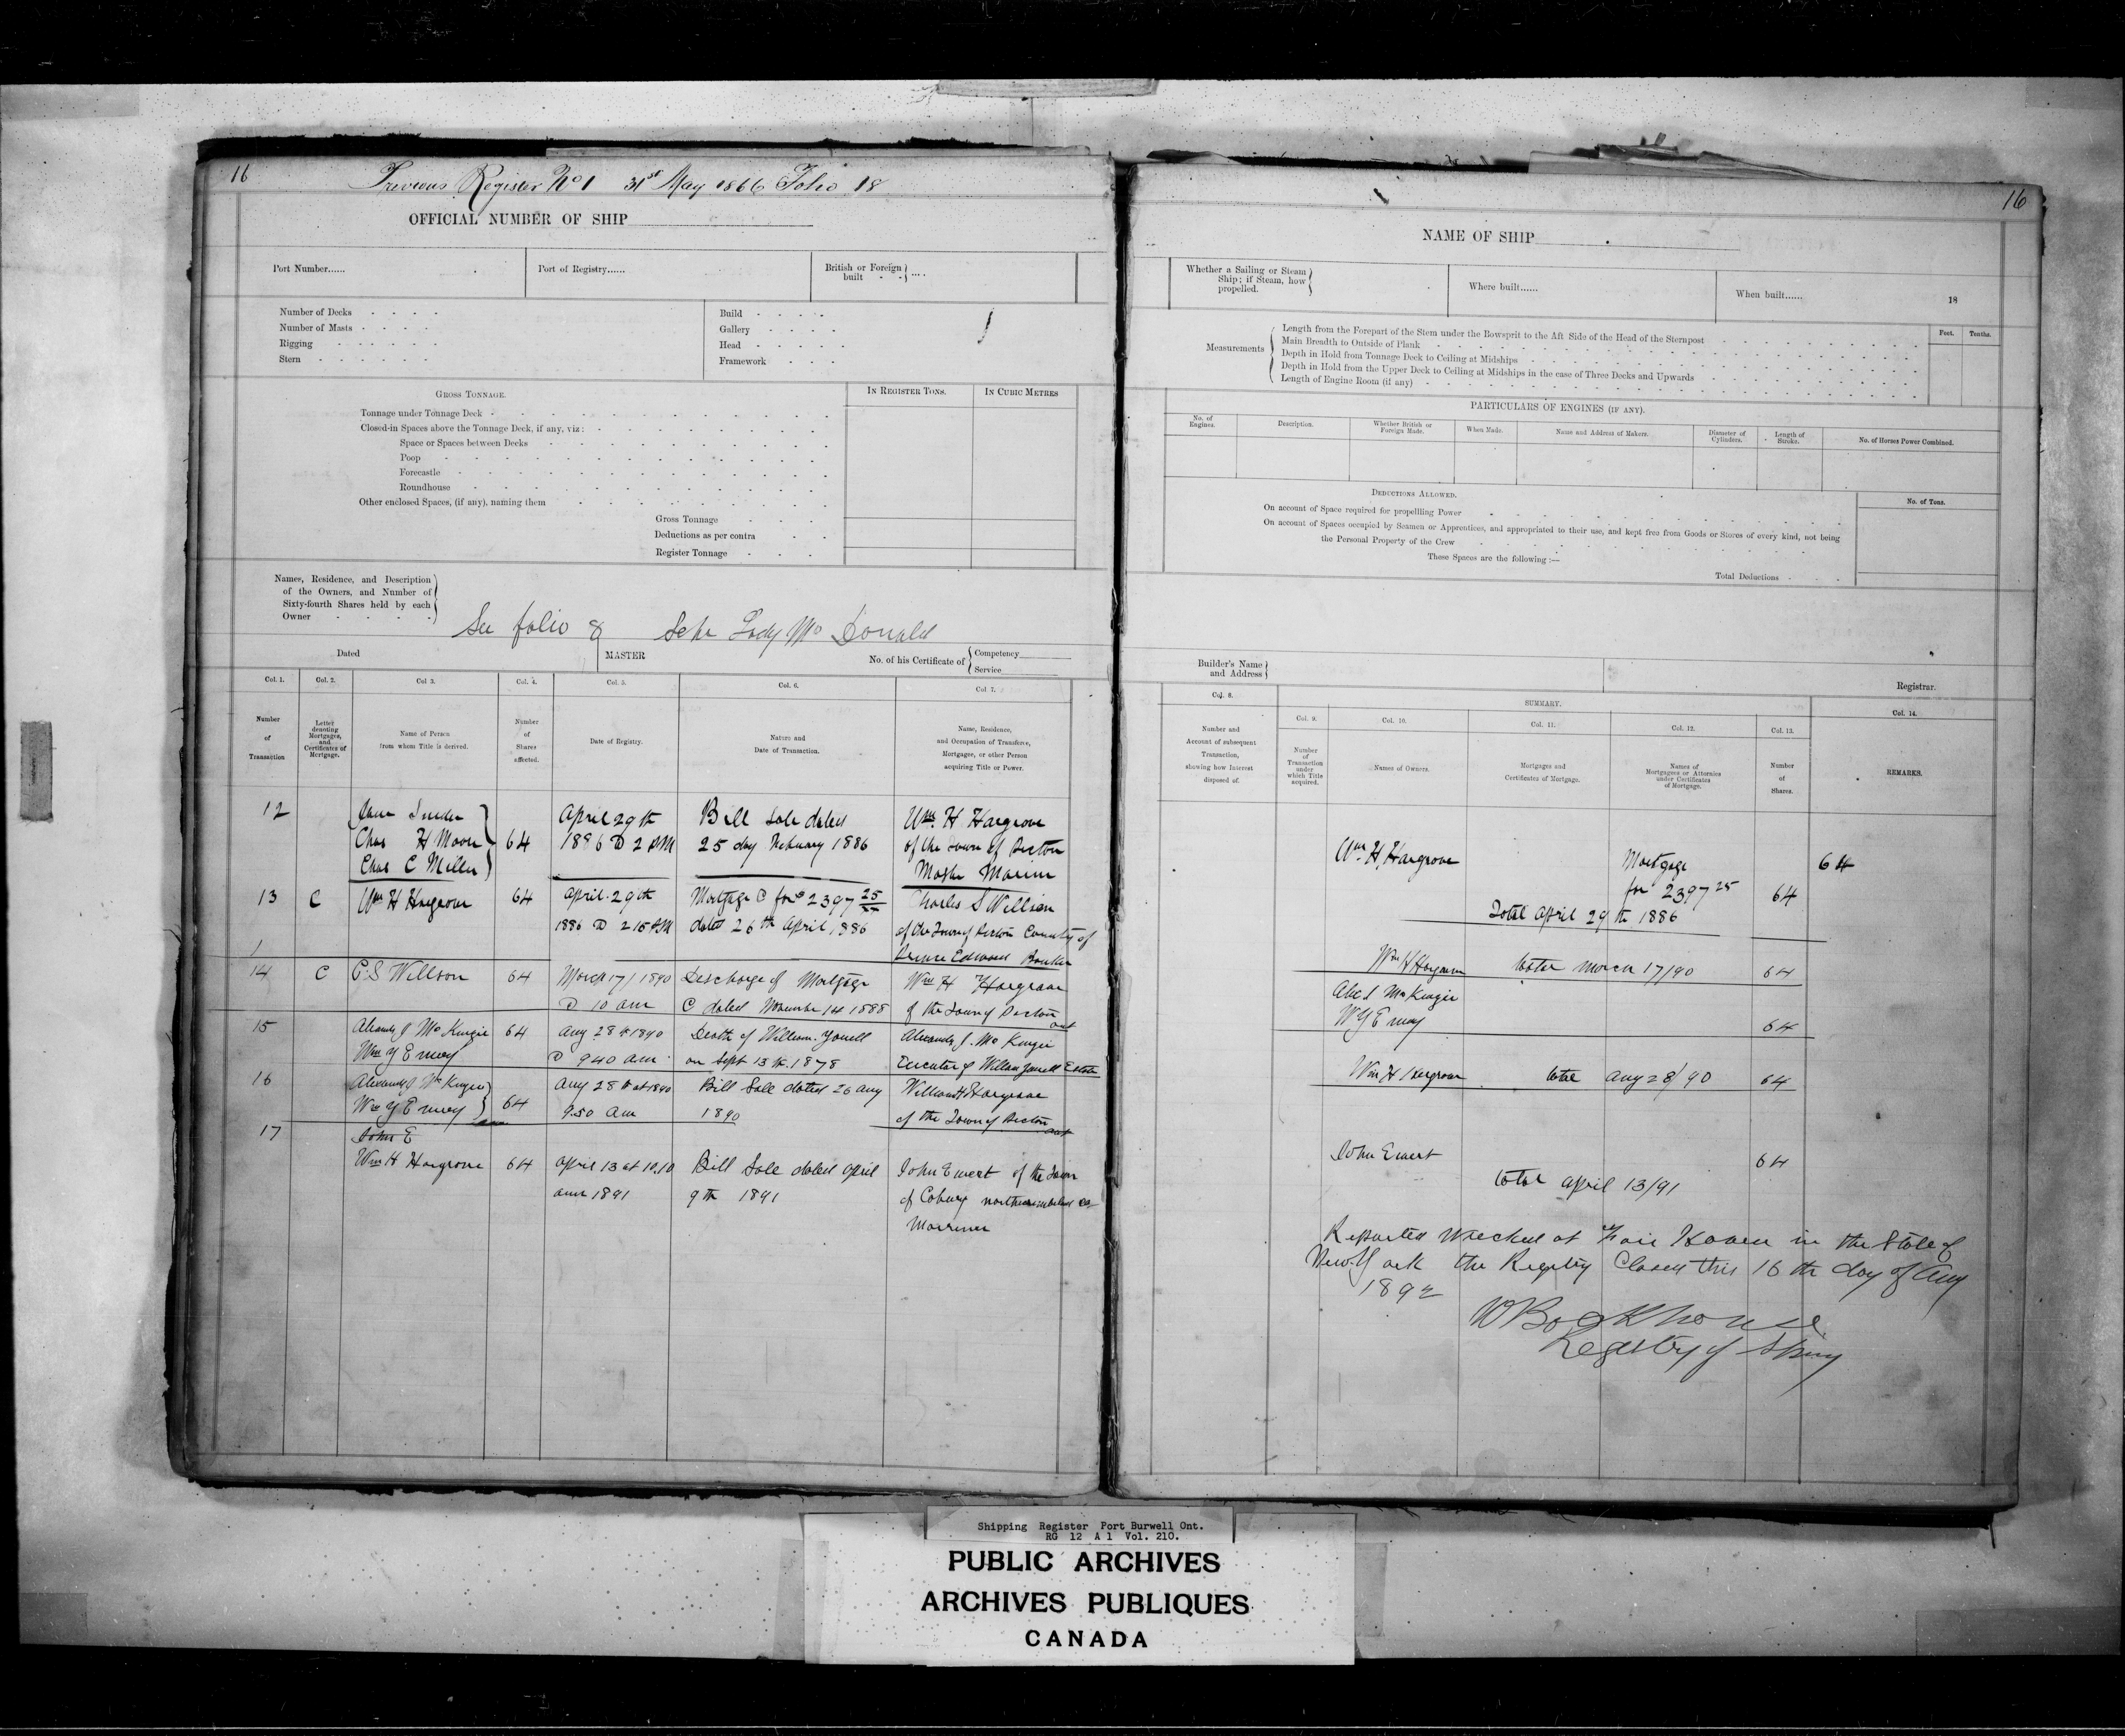 16
Previous Register No 1 31st May 1866 Folio 18
OFFICIAL NUMBER OF SHIP
Port Number......
Port of Registry......
British or Foreign built - - ....
Number of Decks
Number of Masts
Rigging
Stern
Build
Gallery
Head
Framework
GROSS TONNAGE.
IN REGISTER TONS.
IN CUBIC METRES
Tonnage under Tonnage Deck
Closed-in Spaces above the Tonnage Deck, if any, viz:
Space or Spaces between Decks
Poop
Forecastle
Roundhouse
Other enclosed Spaces, (if any), naming them
Gross Tonnage
Deductions as per contra
Register Tonnage
Names, Residence, and Description
of the Owners, and Number of
Sixty-fourth Shares held by each
Owner
See folio 8 Schr Lady Mc Donald
Dated
MASTER
No. of his Certificate of
Competency
Service
Col. 1.
Col. 2.
Col 3.
Col. 4.
Col. 5.
Col. 6.
Col 7.
Number
of
Transaction
Letter
denoting
Mortgages,
and
Certificates of
Mortgage.
Name of Person
from whom Title is derived.
Number
of
Shares
affected.
Date of Registry.
Nature and
Date of Transaction.
Name, Residence,
and Occupation of Transferee,
Mortgagee, or other Person
acquiring Title or Power.
12
Chas H Moore
Chas C Miller
64
April 29th
1886 @ 2 PM
Bill Sale dated
25 day February 1886
Wm. H Hargrove
of the Town of Picton
Master Marine
13 C Wm H Hargrove 64
April 29th
1886 @ 2 15 PM
Mortgage C for $2397 25
dated 26th April 1886
Charles S Willson
of the Town of Picton County of
Prince Edward Banker
14 C C.S Willson 64
March 17/1890
@ 10 am
Discharge of Mortgage
C dated November 14 1888
Wm H Hargrove
of the Town of Picton
Ont
15
Alexandr J McKenzie
Wm Y Emery
64
Aug 28th 1890
@ 940 am
Death of William Yowell
on Sept 13th 1878
Alexandr J. McKenzie
Executor of William Yowell Estate
16
Alexandr J McKenzie
Wm Y Emery
64
Aug 28th at 1890
9.50 am
Bill Sale dated 26 Aug
1890
William H Hargrove
of the Town of Picton
Ont
17
John E
Wm H Hargrove 64
April 13 at 10.10
am 1891
Bill Sale dated April
9th 1891
John Ewert of the Town
of Coburg Northumberland Co
Mariner
16
NAME OF SHIP
Whether a Sailing or Steam
Ship; if Steam, how
propelled.
Where built......
When built......
18
Measurements
Length from the Forepart of the Stem under the Bowsprit to the Aft Side of the Head of the Sternpost
Main Breadth to Outside of Plank
Depth in Hold from Tonnage Deck to Ceiling at Midships
Depth in Hold from the Upper Deck to Ceiling at Midships in the case of Three Decks and Upwards
Length of Engine Room (if any)
Feet.
Tenths.
PARTICULARS OF ENGINES (IF ANY).
No. of
Engines.
Description.
Whether British or
Foreign Made.
When Made.
Name and Address of Makers.
Diameter of
Cylinders.
Length of
Stroke.
No. of Horses Power Combined.
DEDUCTIONS ALLOWED.
No. of Tons.
On account of Space required for propelling Power
On account of Spaces occupied by Seamen or Apprentices, and appropriated to their use, and kept free from Goods or Stores of every kind, not being
the Personal Property of the Crew
These Spaces are the following:—
Total Deductions
Builder's Name
and Address
Registrar.
Col. 8.
SUMMARY.
Col. 9.
Col. 10.
Col. 11.
Col. 12.
Col. 13.
Col. 14.
Number and
Account of subsequent
Transaction,
showing how Interest
disposed of.
Number
of
Transaction
under
which Title
acquired.
Names of Owners.
Mortgages and
Certificates of Mortgage.
Names of
Mortgagees or Attornies
under Certificates
of Mortgage.
Number
of
Shares.
REMARKS.
Wm H Hargrove
Mortgage
for 2397 25
64
64
Total April 29th 1886
Wm H Hargrove total March 17/90 64
Alex J McKenzie
W Y Emery
64
Wm H Hargrove total Aug 28/90 64
John Ewert 64
total April 13/91
Reported wrecked at Fair Haven in the State of
New York the Registry Closed this 16th day of Aug
1892
W Backhouse
Registry of Shipg
Shipping Register Port Burwell Ont.
RG 12 A 1 Vol. 210.
PUBLIC ARCHIVES
ARCHIVES PUBLIQUES
CANADA